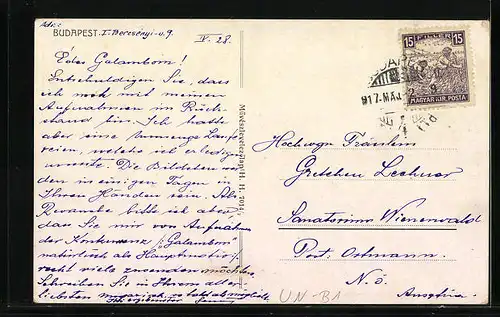 BUDAPEST. I. Bercsényi-u. 9.
IV. 28.
Édes Galambom!
Entschuldigen Sie, dass
ich noch mit meinen
Aufnahmen in Rück-
stand bin. Ich hatte
aber eine Unmenge Laufe-
reien, welche ich erledigen
musste. Die Bildchen wer-
den in einigen Tagen in
Ihren Händen sein. Als
Revanche bitte ich aber,
dass Sie mir von Aufnahmen
der Konkurrenz (Galambom
natürlich als Hauptmotiv!)
recht viele zusenden möchten.
Schreiben Sie in Ihrem aller
liebsten
Művészlevelezőlap
15 FILLÉR 15
MAGYAR KIR. POSTA
917. MÁJ.
Hochwgn Fräulein
Gretchen Lechner
Sanatorium Wienerwald
Post: Ortmann.
N. Ö.
Austria.
UN-B1